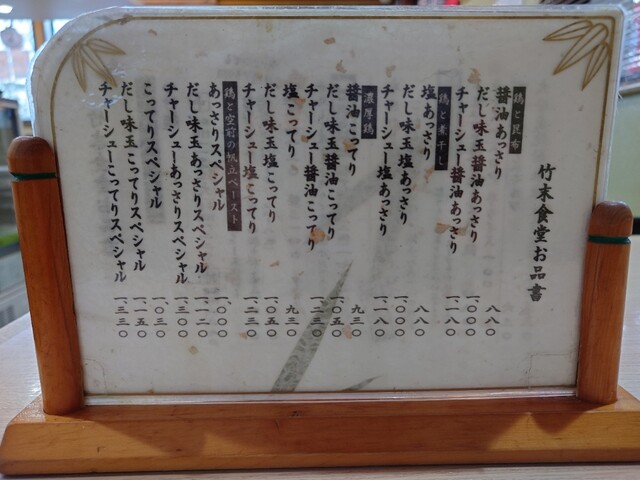 竹末食堂お品書
鶏と昆布
醤油あっさり 八八〇
だし味玉醤油あっさり 一、〇〇〇
チャーシュー醤油あっさり 一、一八〇
鶏と煮干し
塩あっさり 八八〇
だし味玉塩あっさり 一、〇〇〇
チャーシュー塩あっさり 一、一八〇
濃厚鶏
醤油こってり 九三〇
だし味玉醤油こってり 一、〇五〇
チャーシュー醤油こってり 一、二三〇
塩こってり 九三〇
だし味玉塩こってり 一、〇五〇
チャーシュー塩こってり 一、二三〇
鶏と空前の帆立ペースト
あっさりスペシャル 一、〇〇〇
だし味玉あっさりスペシャル 一、一二〇
チャーシューあっさりスペシャル 一、三〇〇
こってりスペシャル 一、〇三〇
だし味玉こってりスペシャル 一、一五〇
チャーシューこってりスペシャル 一、三三〇